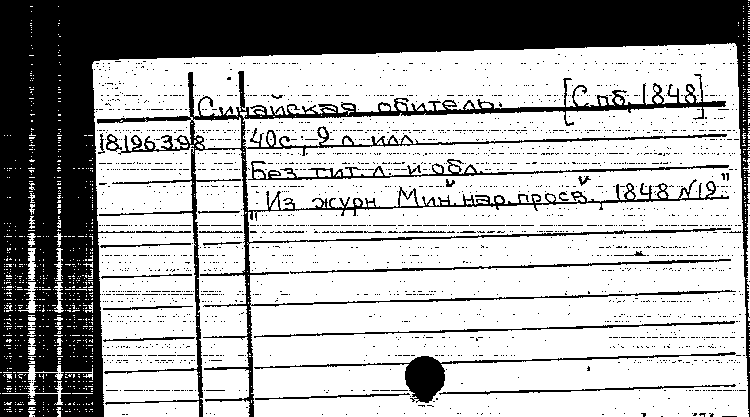 Синайская обитель. [Спб, 1848]
18.196.3.98 40с; 9 л. илл.
Без тит. л. и обл.
"Из журн. Мин. нар. просв., 1848 №12"